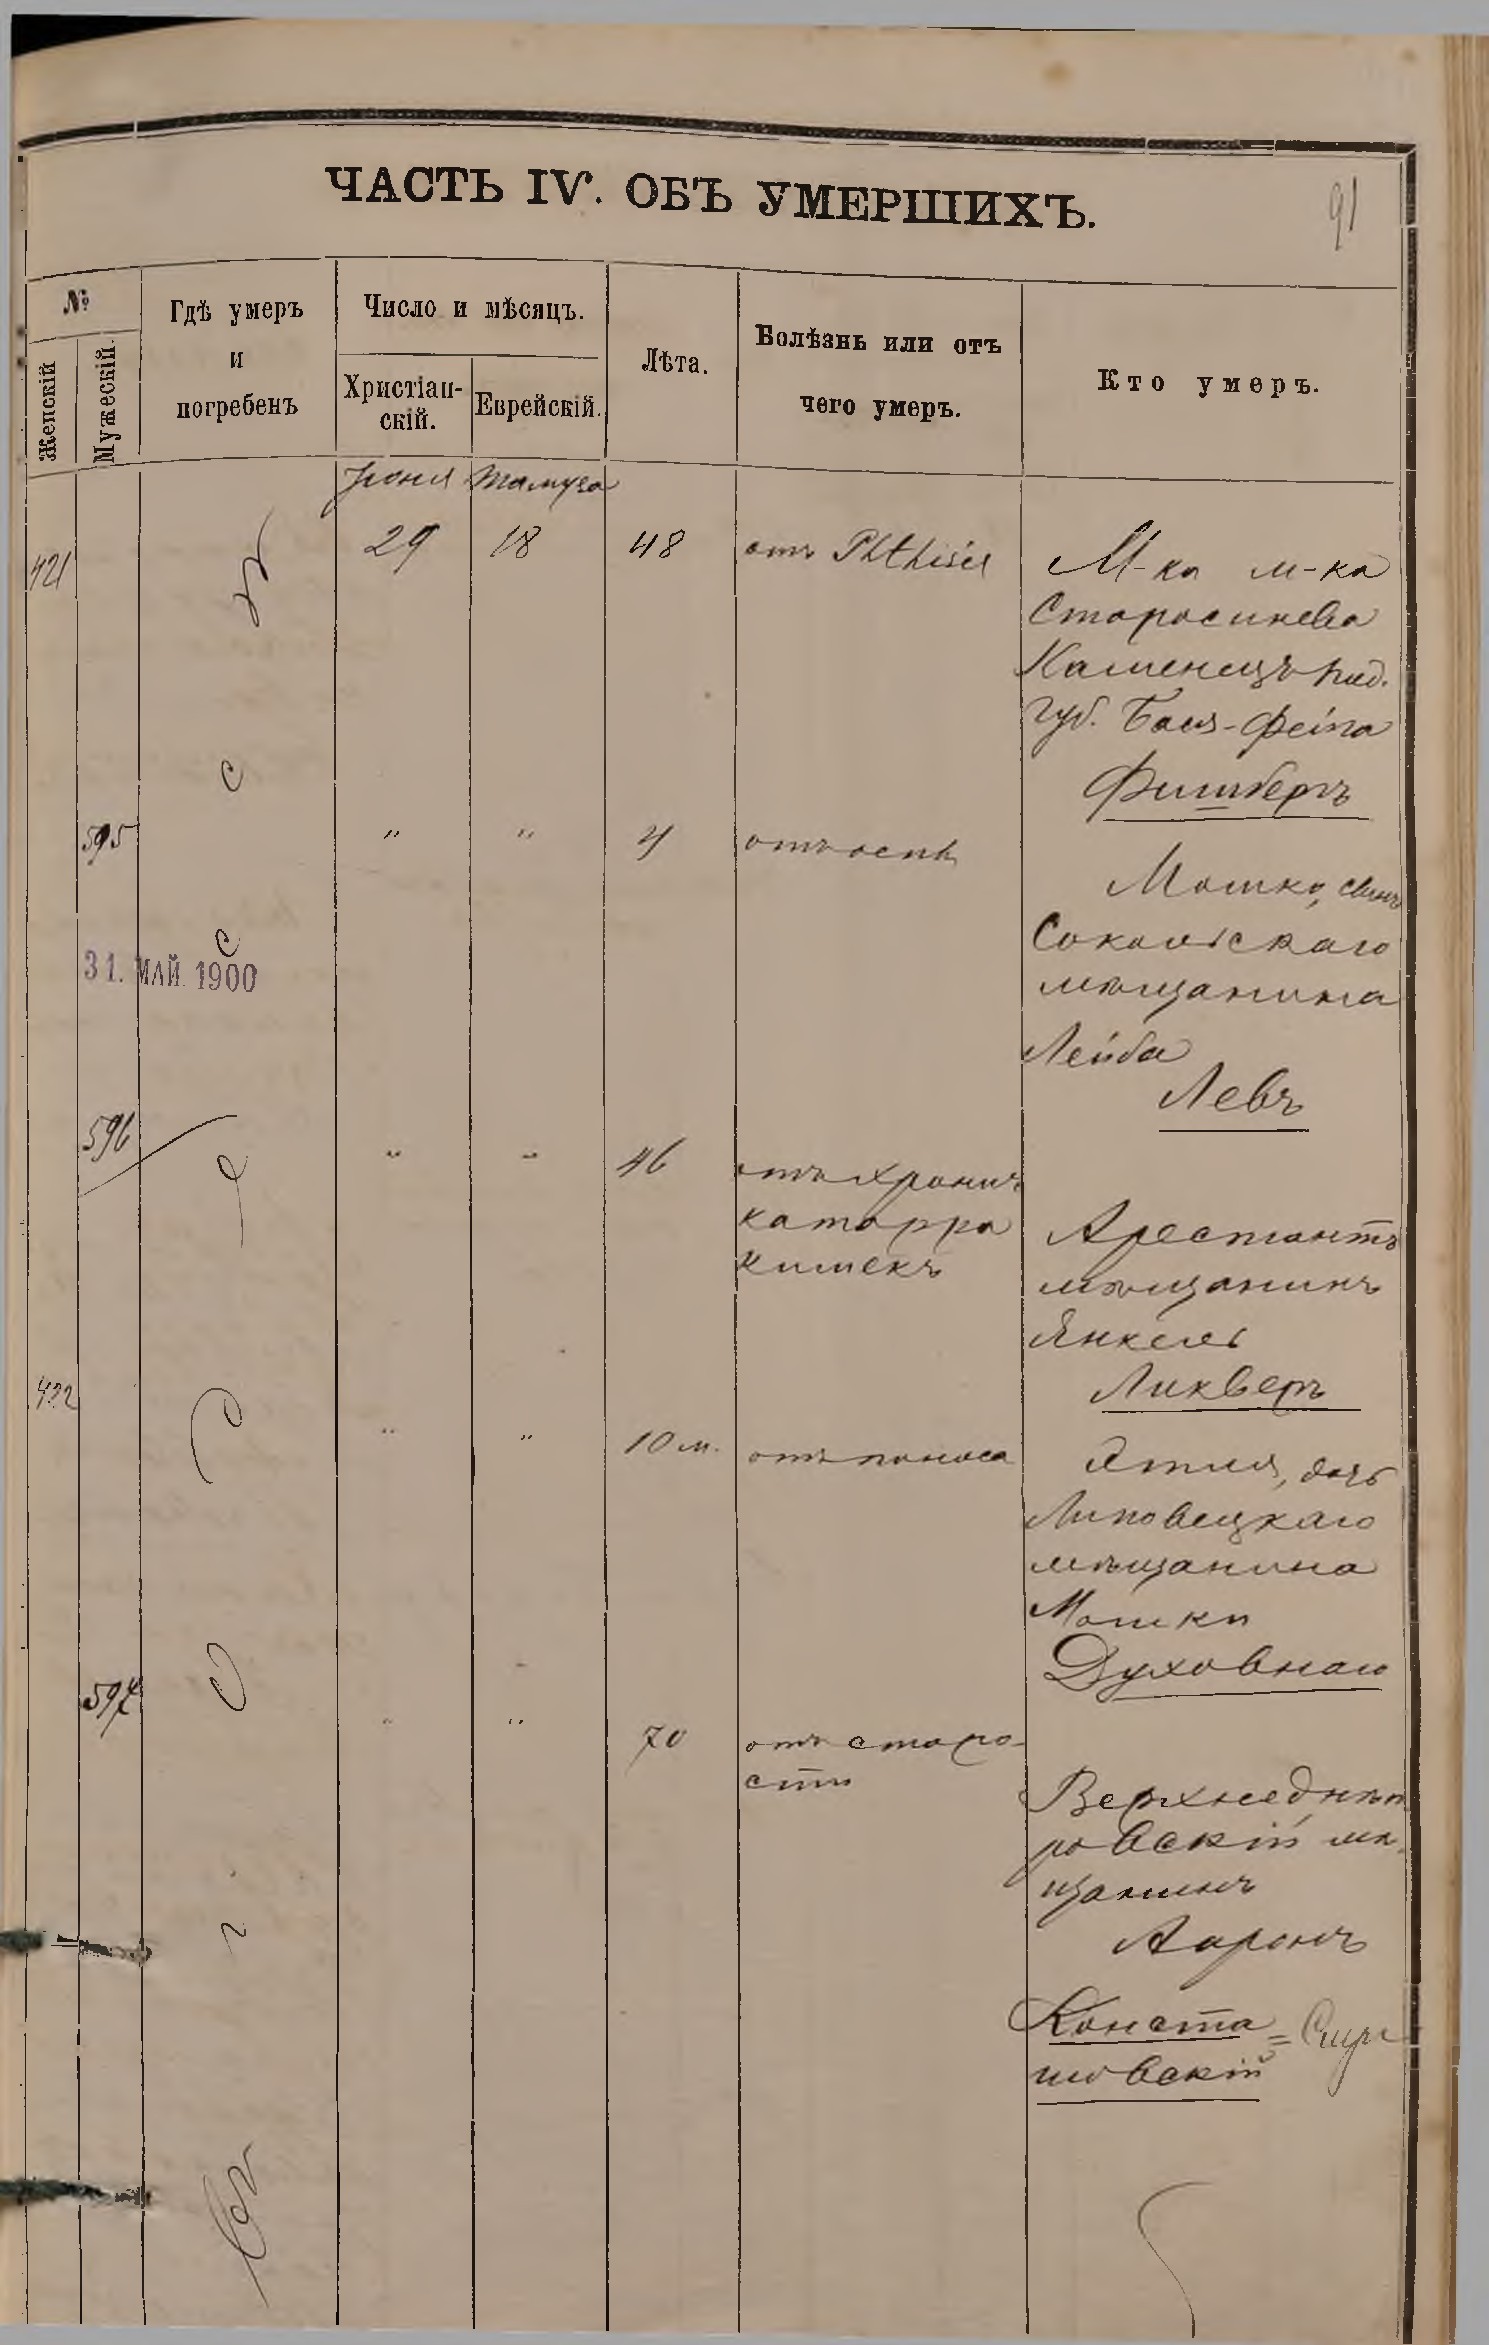 ЧАСТЬ IV. ОБЪ УМЕРШИХЪ.
91
№
Женскій
Мужескій.
Гдѣ умеръ
и
погребенъ
Число и мѣсяцъ.
Христіан-
скій.
Еврейскій.
Лѣта.
Болѣзнь или отъ
чего умеръ.
Кто умеръ.
Іюня Тамуза
421
29 18 48 отъ Phthisis
М-ка м-ка
Старосинева
Каменецъ под.
губ. Бася-Фейга
Фишберъ
595
" " 4 отъ оспы
Мошко, сынъ
Сокольскаго
мѣщанина
Лейба
Левъ
31. МАЙ 1900
596
" " 46 отъ хронич
катарра
кишекъ
Арестантъ
мѣщанинъ
Янкель
Ликверъ
422
" " 10 м. отъ поноса
Этля, дочь
Липовецкаго
мѣщанина
Мошки
Духовнаго
597
" " 70 отъ старо-
сти
Верхнеднѣп
ровскій мѣ
щанинъ
Ааронъ
Конста
новскій
въ Одессѣ